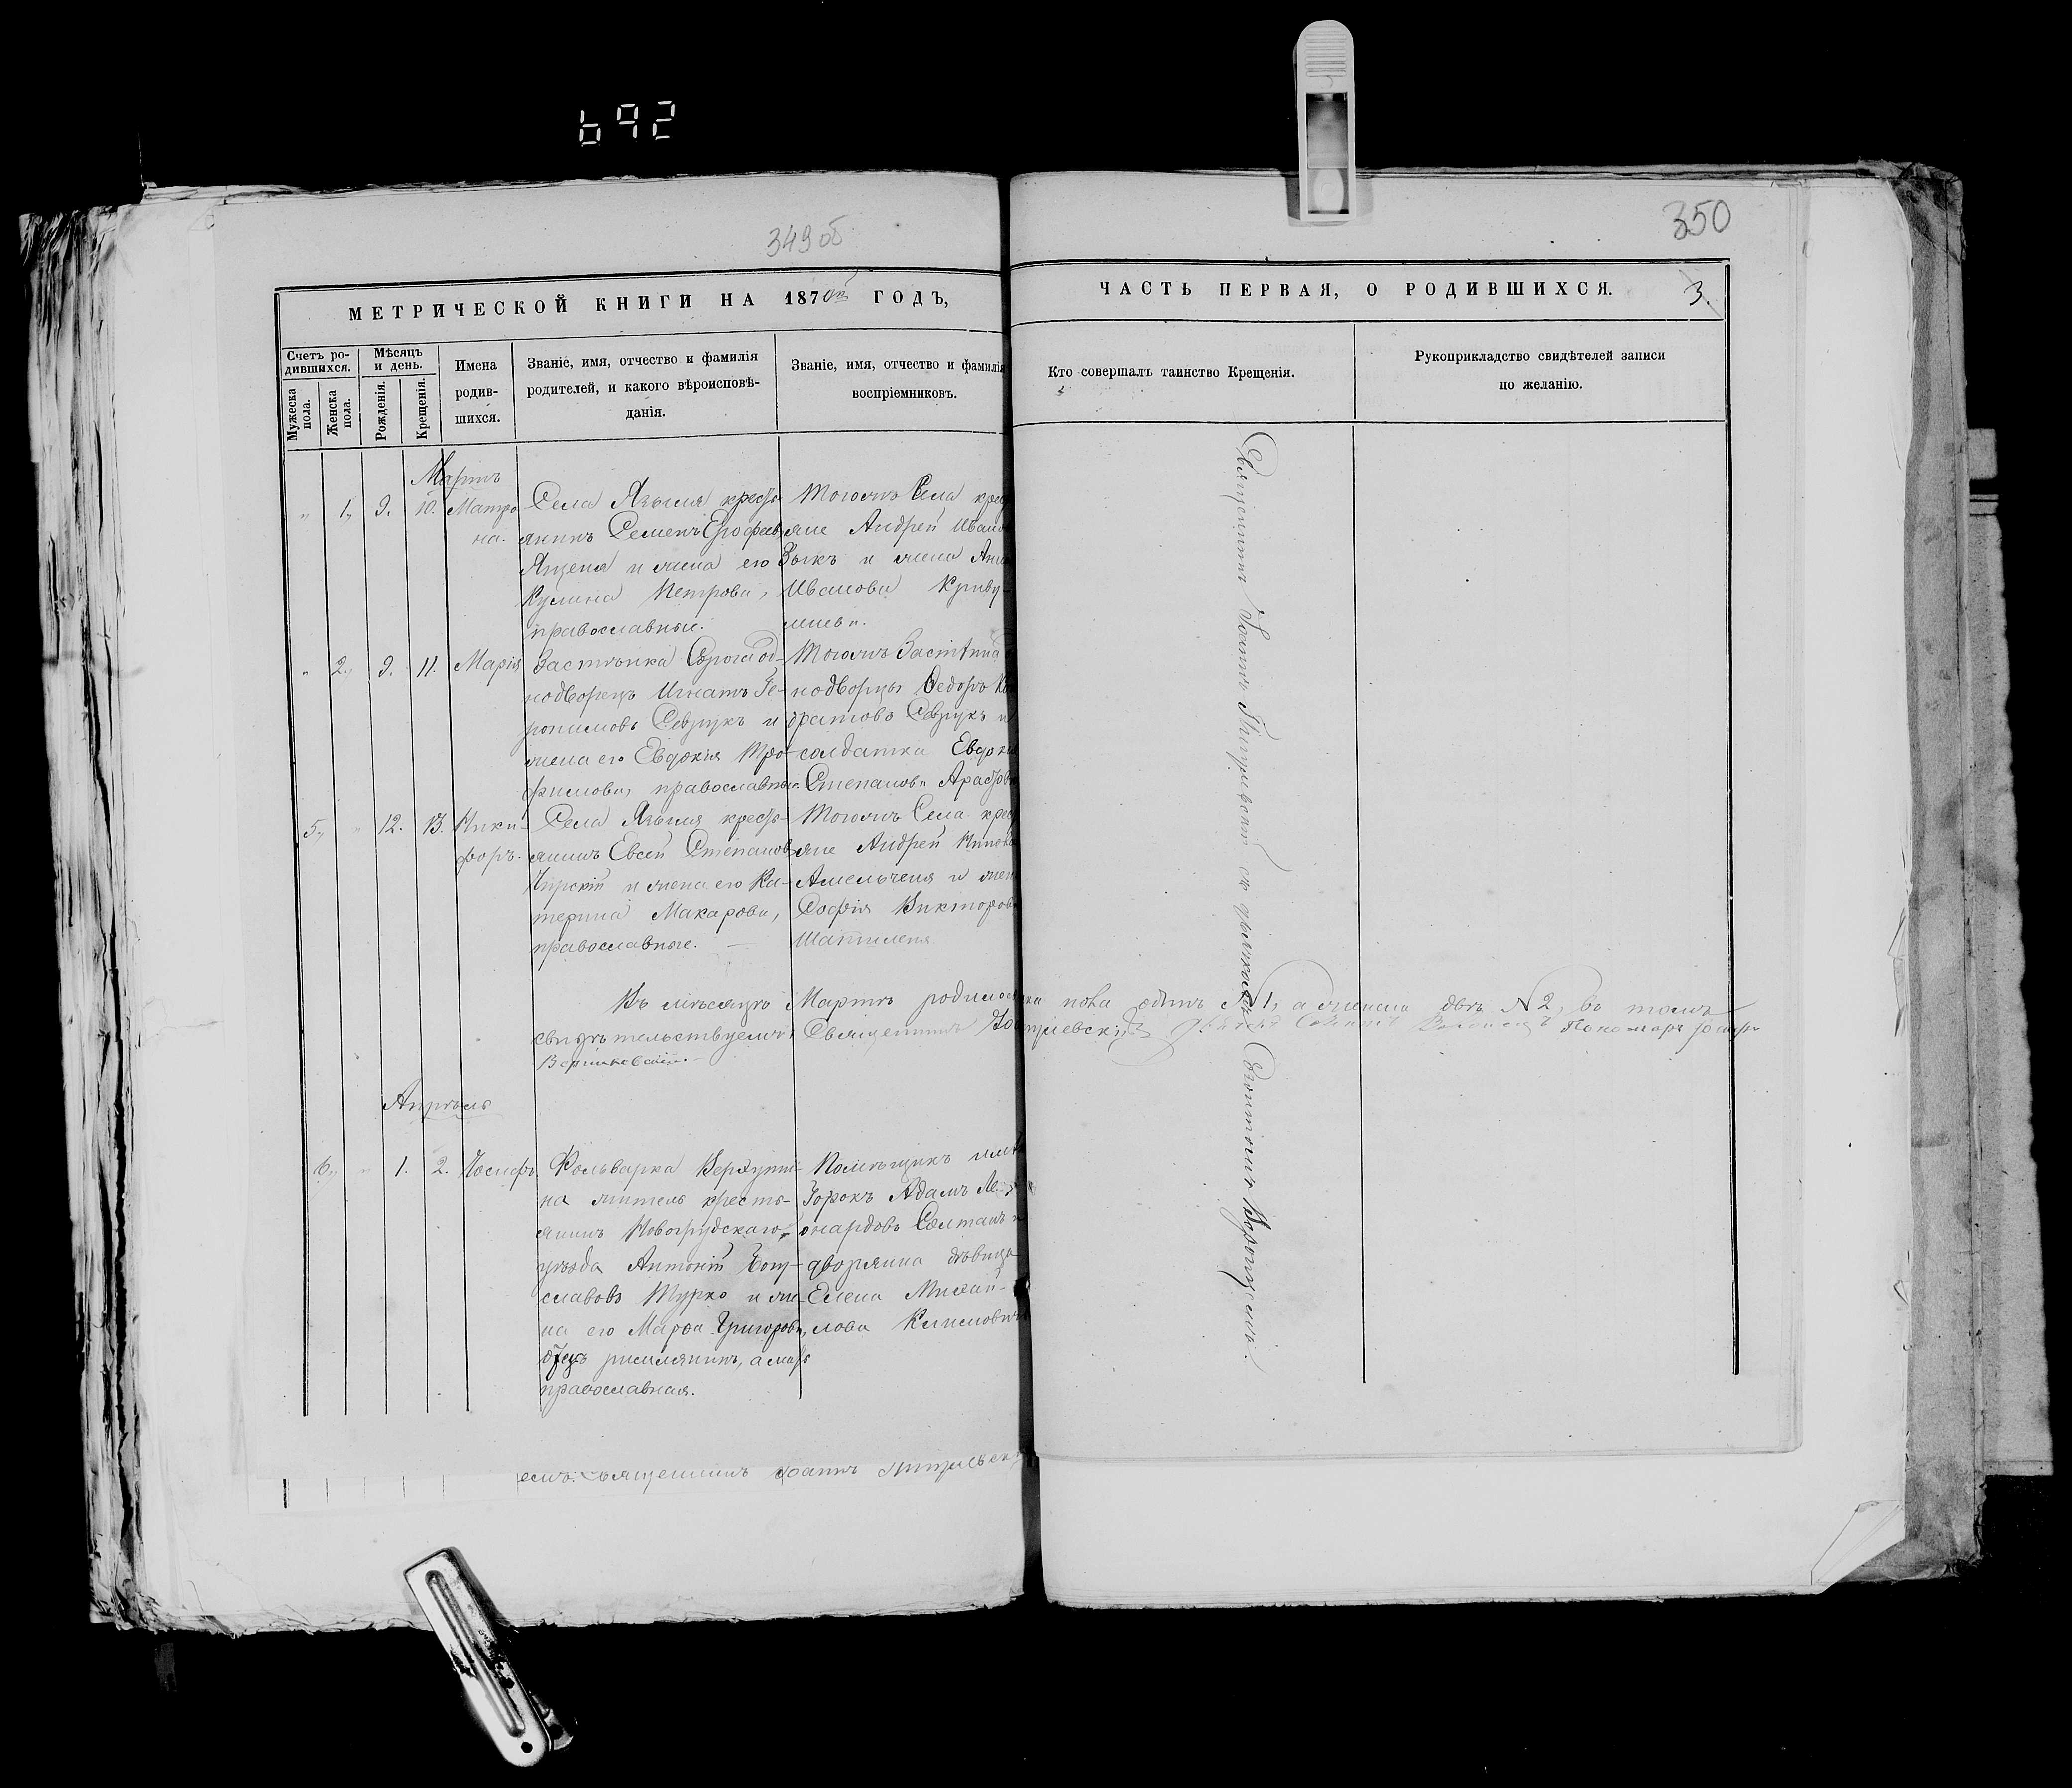 692
349 об
350
МЕТРИЧЕСКОЙ КНИГИ НА 1870й ГОДЪ,
ЧАСТЬ ПЕРВАЯ, О РОДИВШИХСЯ.
3.
Счетъ ро-
дившихся.
Мужеска пола.
Женска пола.
Мѣсяцъ
и день.
Рожденія.
Крещенія.
Имена
родив-
шихся.
Званіе, имя, отчество и фамилія
родителей, и какого вѣроисповѣ-
данія.
Званіе, имя, отчество и фамилія
воспріемниковъ.
Кто совершалъ таинство Крещенія.
Рукоприкладство свидѣтелей записи
по желанію.
Мартъ
„ 1„ 9. 10. Матро-
на.
Села Языля кресть-
янинъ Семенъ Ерофеевъ
Яценя и жена его
Кулина Петрова,
православные.
Тогожъ Села крес
яне Андрей Иванов
Зыкъ и жена
Иванова
„ 2„ 9. 11. Марія
Застѣнка од-
нодворецъ Игнатъ Ге-
ронимовъ Севрукъ и
жена его Евдокія Тро-
фимова, православные.
Тогожъ Застѣнка
нодворцы Ѳедоръ
Севрукъ и
солдатка Евдокія
Степанова
5„ „ 12. 13. Ники-
форъ.
Села Языля кресть-
янинъ Евсей Степановъ
Чирскій и жена его Ка-
терина Макарова,
православные.
Тогожъ Села крес
яне Андрей
Амельченя и жен
Софія Викторов
Шатиленя
Въ мѣсяцѣ Мартѣ родилось
пола одинъ №1, а женска двѣ №2, въ томъ
свидѣтельствуемъ Священникъ
Пономарь
Апрѣль
6„ „ 1. 2. Іосифъ.
Фольварка Верхути-
на житель кресть-
янинъ Новогрудскаго
уѣзда Антоній Богу-
славовъ Турко и же-
на его Марѳа Григорова,
отецъ римлянинъ, а мать
православная.
Помѣщикъ имѣ
Горокъ Адамъ Ле-
онардовъ Солтанъ и
дворянка дѣвица
Елена Михай-
лова Климовичъ
Священникъ Іоаннъ съ дьячкомъ Воронцемъ.
емъ: Священникъ Іоаннъ